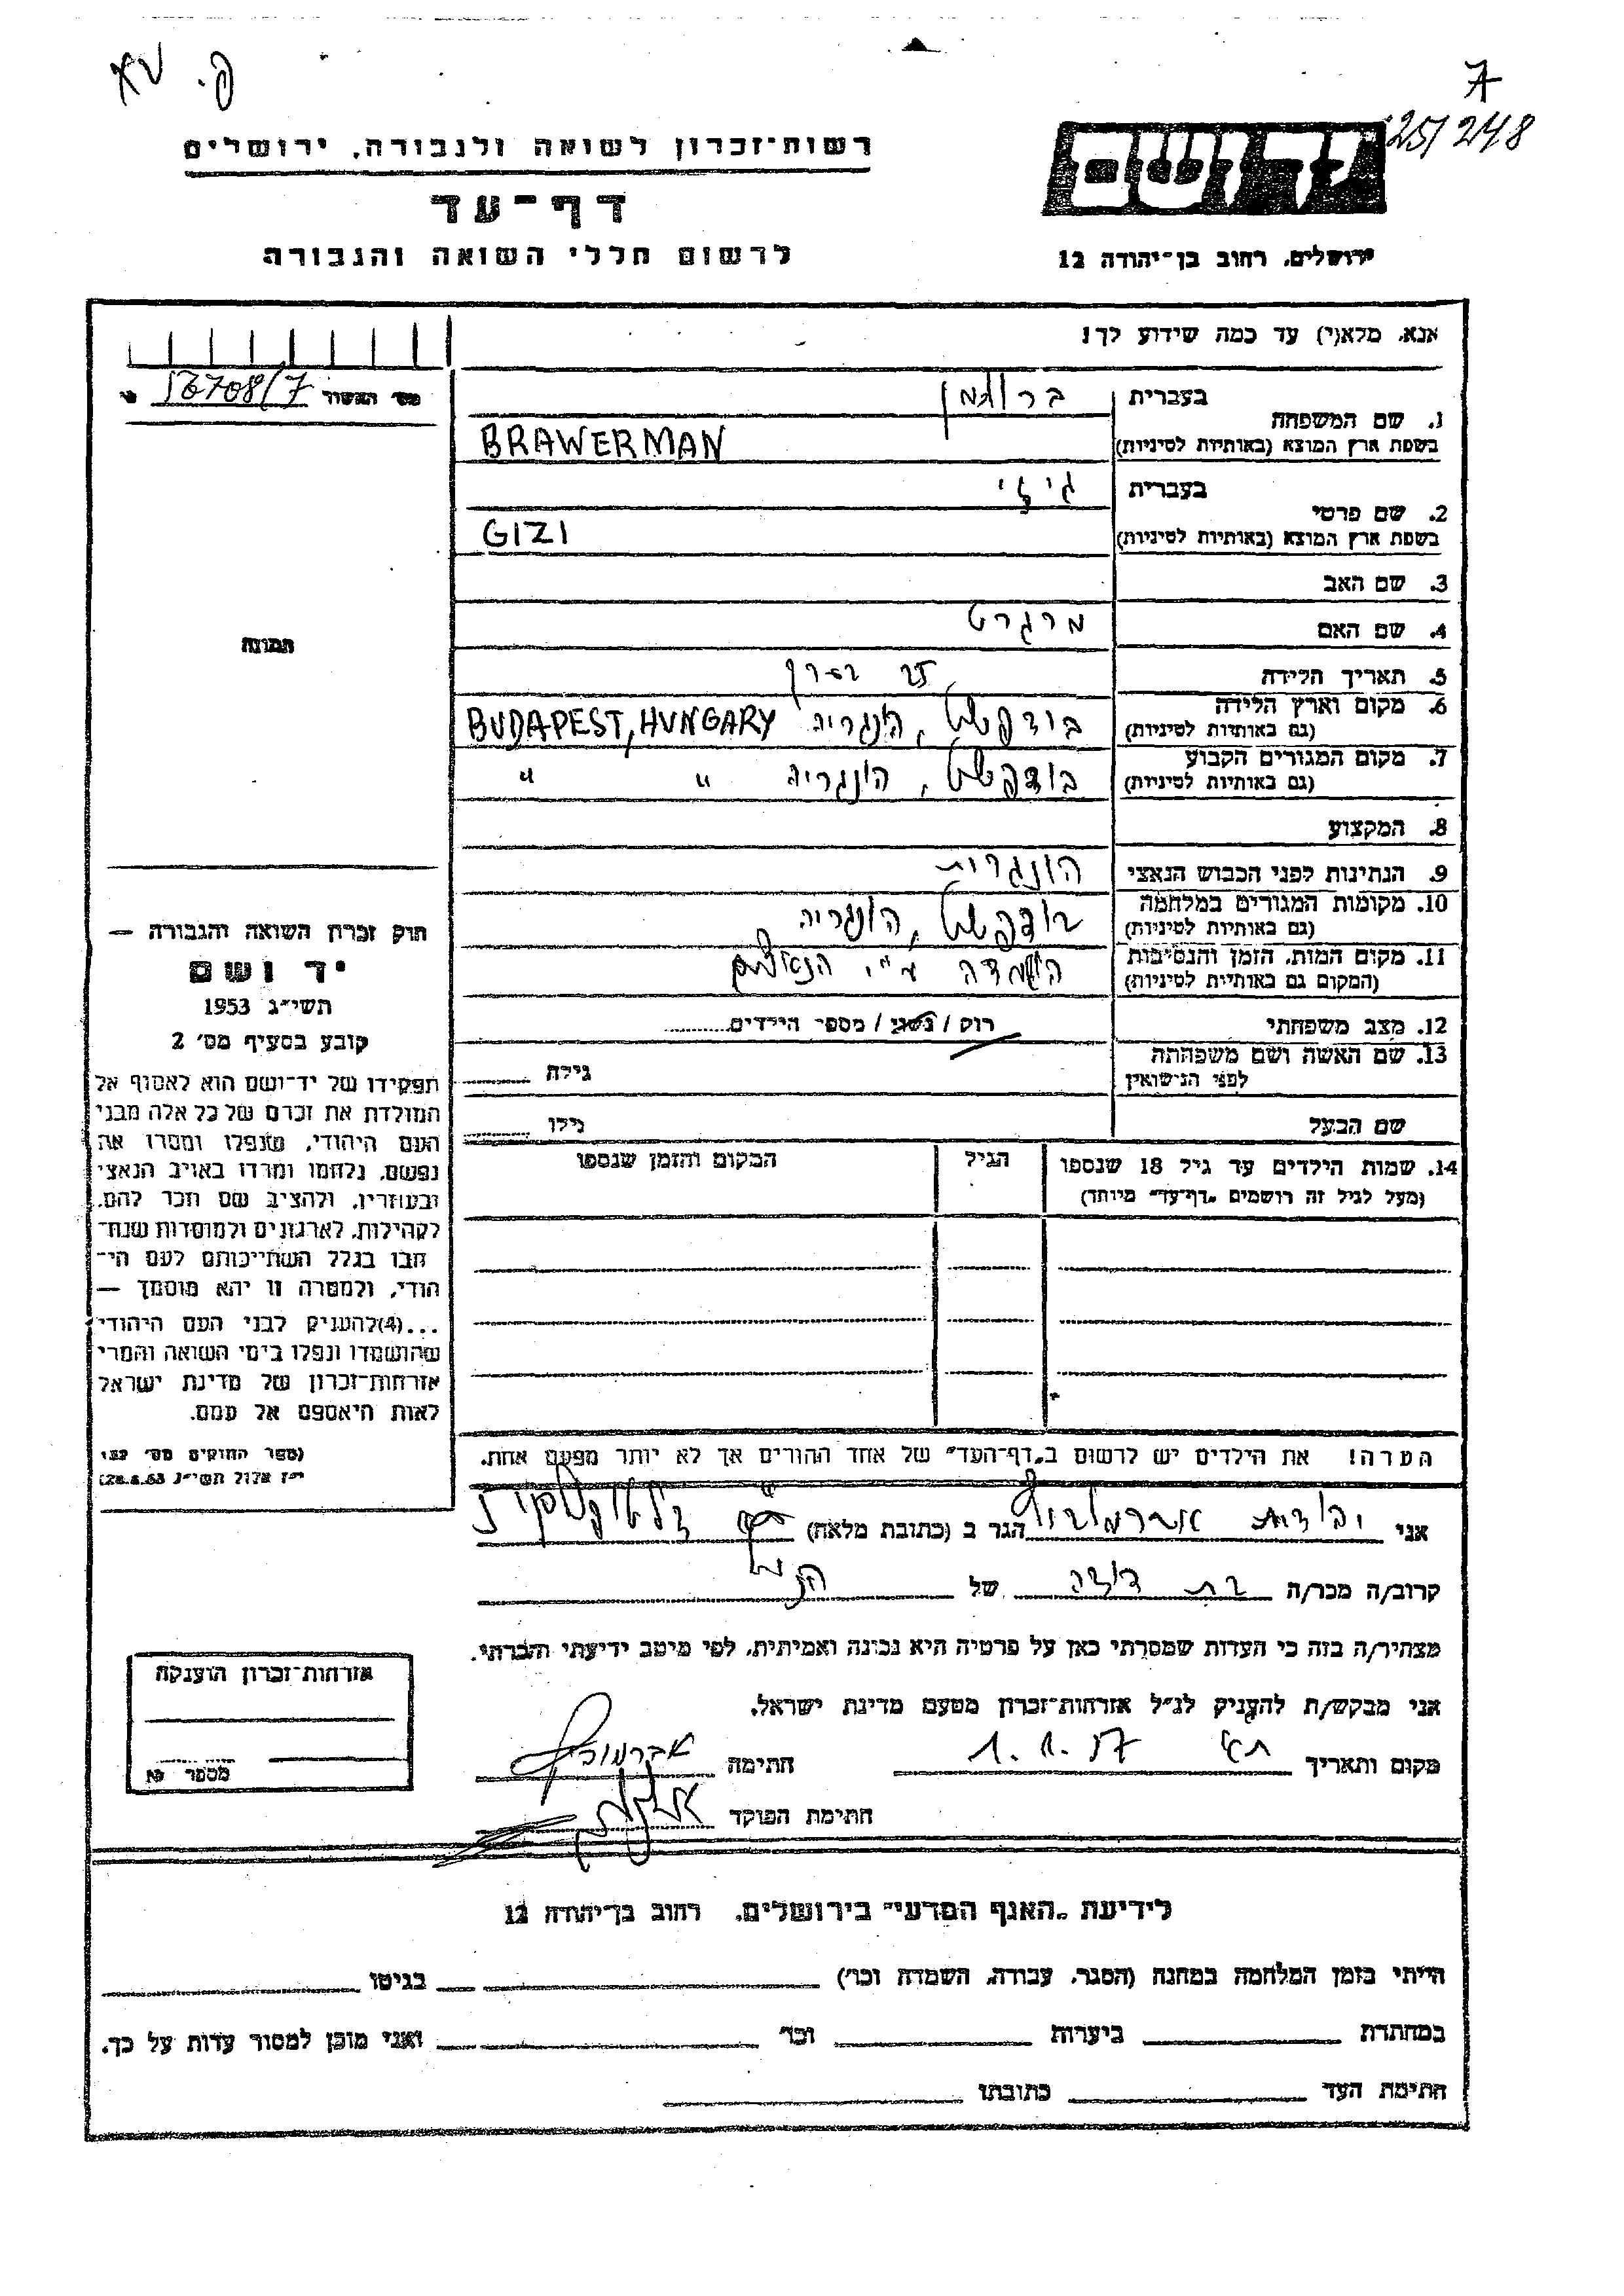 ק. טא
7
25/248
רשות־זכרון לשואה ולגבורה, ירושלים
דף־עד
לרשום חללי השואה והגבורה
יד ושם
ירושלים, רחוב בן־יהודה 12
אנא, מלא(י) עד כמה שידוע לך!
מס׳ האשור 56708/7
1. שם המשפחה
בעברית ברוורמן
בשפת ארץ המוצא (באותיות לטיניות) BRAWERMAN
2. שם פרטי
בעברית גיזי
בשפת ארץ המוצא (באותיות לטיניות) GIZI
3. שם האב
4. שם האם מרגרט
5. תאריך הלידה 25
6. מקום וארץ הלידה
(גם באותיות לטיניות) בודפשט, הונגריה BUDAPEST, HUNGARY
7. מקום המגורים הקבוע
(גם באותיות לטיניות) בודפשט, הונגריה " "
8. המקצוע
9. הנתינות לפני הכבוש הנאצי הונגרית
10. מקומות המגורים במלחמה
(גם באותיות לטיניות) בודפשט, הונגריה
11. מקום המות, הזמן והנסיבות
(המקום גם באותיות לטיניות) הושמדה ע"י הנאצים
12. מצב משפחתי רוק / נשוי / מספר הילדים
13. שם האשה ושם משפחתה
לפני הנישואין גילה
שם הבעל גילו
14. שמות הילדים עד גיל 18 שנספו הגיל המקום והזמן שנספו
(מעל לגיל זה רושמים „דף־עד" מיוחד)
הערה! את הילדים יש לרשום ב„דף־העד" של אחד ההורים אך לא יותר מפעם אחת.
תמונה
חוק זכרון השואה והגבורה —
יד ושם
תשי״ג 1953
קובע בסעיף מס׳ 2
תפקידו של יד־ושם הוא לאסוף אל
המולדת את זכרם של כל אלה מבני
העם היהודי, שנפלו ומסרו את
נפשם, נלחמו ומרדו באויב הנאצי
ובעוזריו, ולהציב שם וזכר להם,
לקהילות, לארגונים ולמוסדות שנח־
רבו בגלל השתייכותם לעם הי־
הודי, ולמטרה זו יהא מוסמך —
...(4)להעניק לבני העם היהודי
שהושמדו ונפלו בימי השואה והמרי
אזרחות־זכרון של מדינת ישראל
לאות היאספם אל עמם.
(ספר החוקים מס׳ 132,
י״ז אלול תשי״ג 28.8.53)
אני יהודית אברמוביץ הגר ב (כתובת מלאה)
קרוב/ה מכר/ה בת דודה של הנ"ל
מצהיר/ה בזה כי העדות שמסרתי כאן על פרטיה היא נכונה ואמיתית, לפי מיטב ידיעתי והכרתי.
אני מבקש/ת להעניק לנ״ל אזרחות־זכרון מטעם מדינת ישראל.
מקום ותאריך ת"א 1.1.57 חתימה אברמוביץ
חתימת הפוקד
אזרחות־זכרון הוענקה
מספר
לידיעת „האגף המדעי" בירושלים, רחוב בן־יהודה 12
הייתי בזמן המלחמה במחנה (הסגר, עבודה, השמדה וכו׳) בגיטו
במחתרת ביערות וכו׳ ואני מוכן למסור עדות על כך.
חתימת העד כתובתו